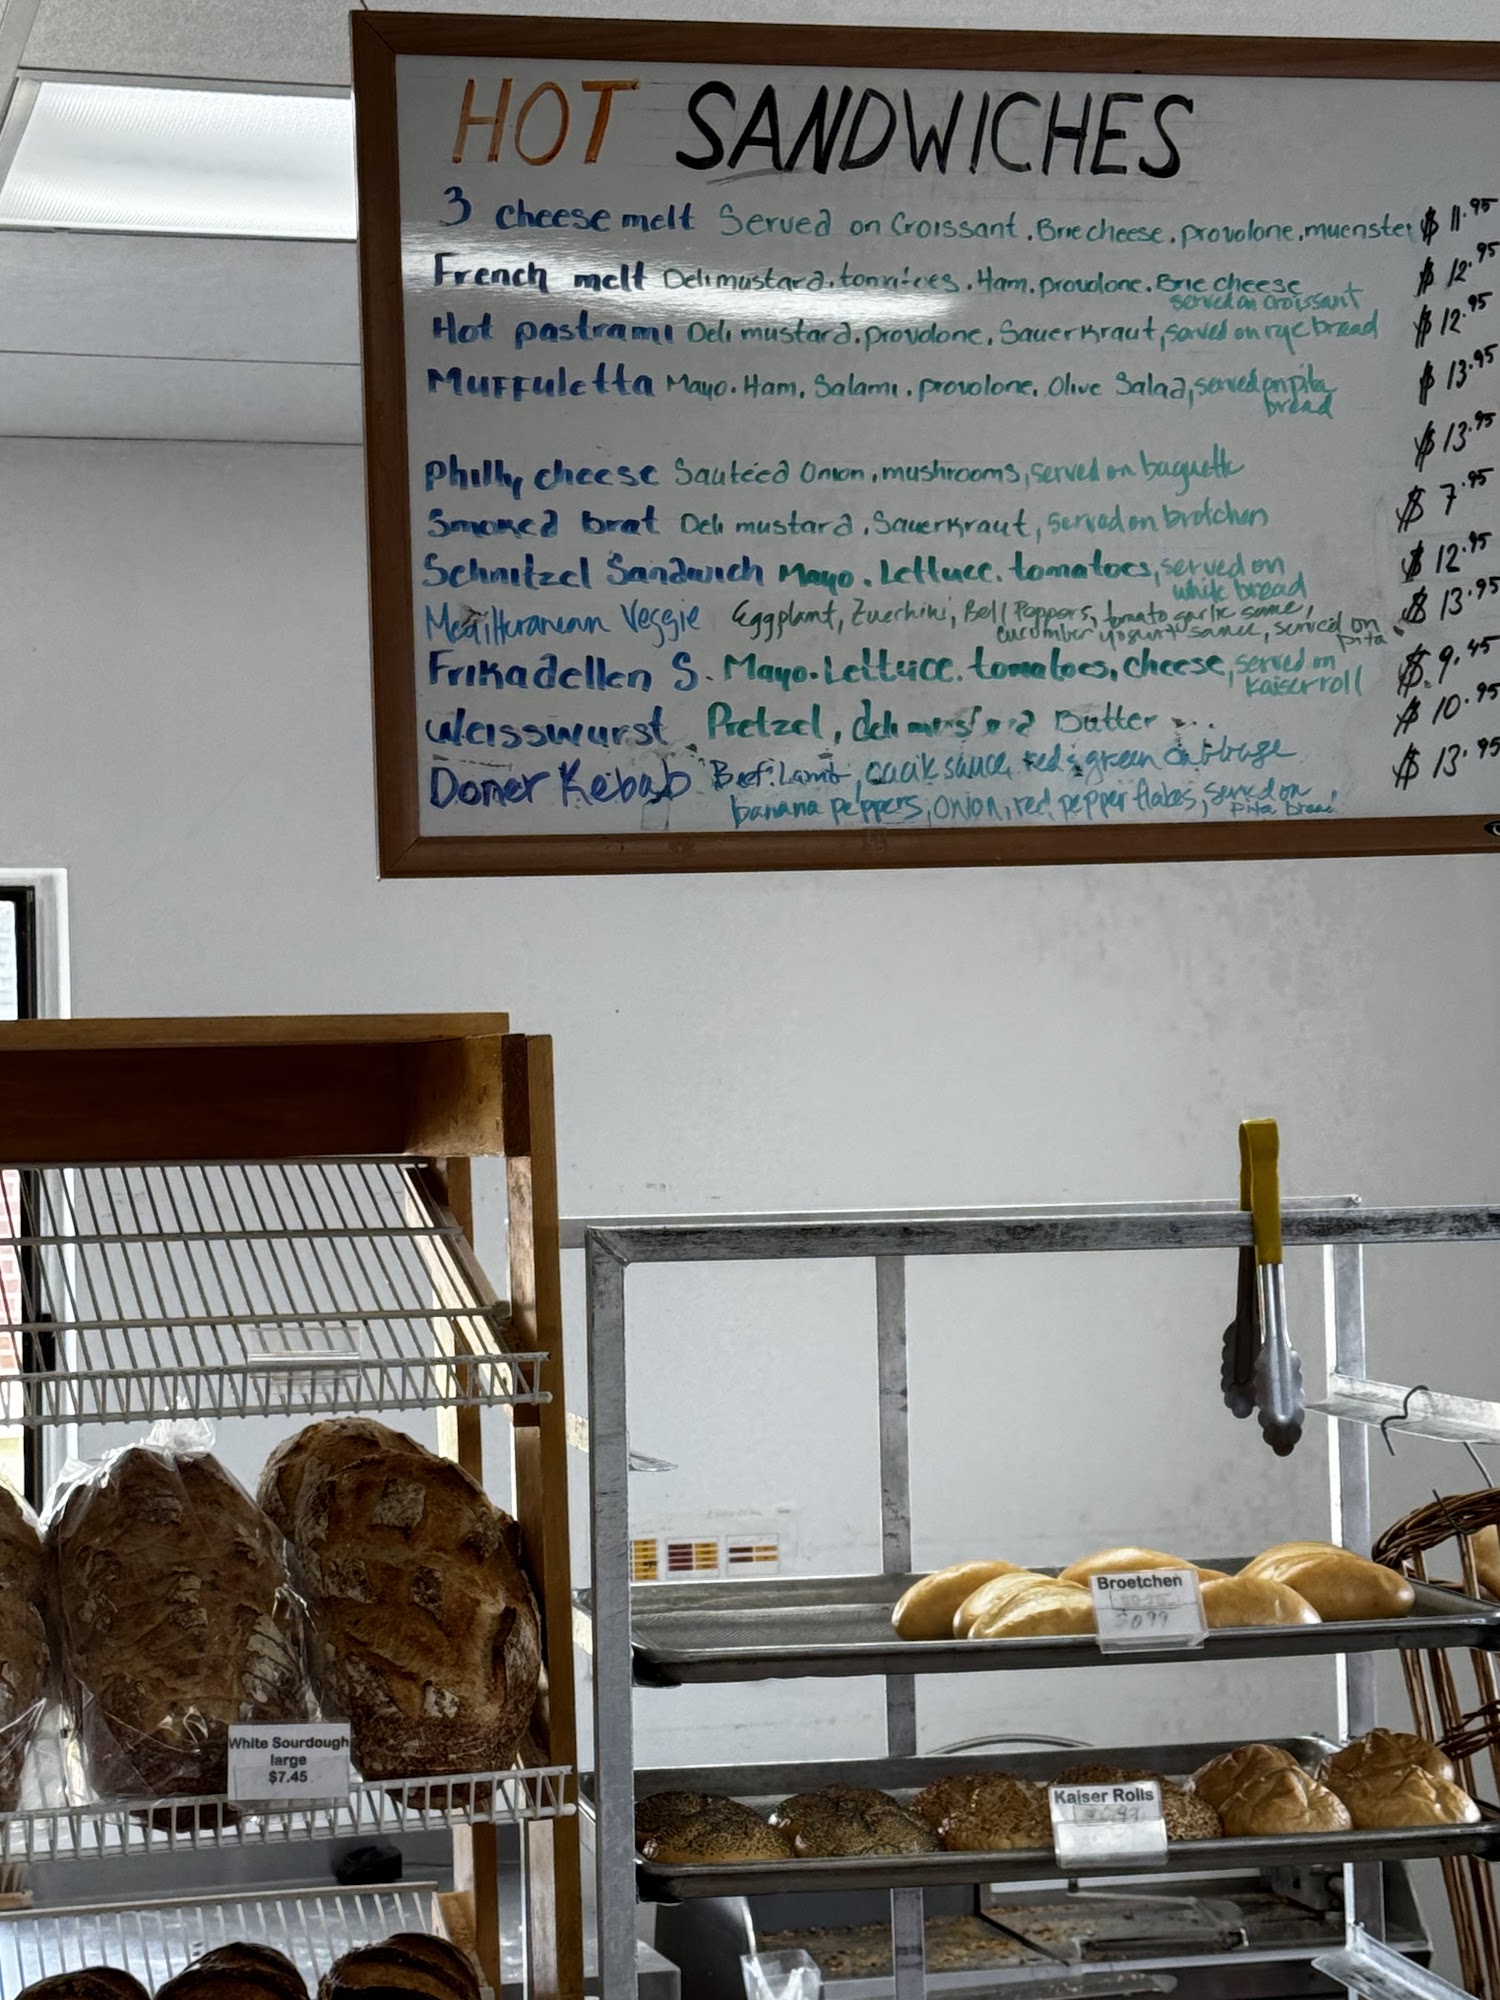 HOT SANDWICHES
3 cheese melt Served on Croissant. Brie cheese. provolone. muenster $ 11.95
French melt Deli mustard. tomatoes. Ham. provolone. Brie cheese $ 12.95
served on croissant
Hot pastrami Deli mustard. provolone. Sauerkraut, served on rye bread $ 12.95
Muffuletta Mayo. Ham. Salami. provolone. Olive Salad, served on pita $ 13.95
bread
Philly cheese Sautéed Onion, mushrooms, served on baguette $ 13.95
Smoked brat Deli mustard. Sauerkraut, served on brotchen $ 7.95
Schnitzel Sandwich Mayo. Lettuce. tomatoes, served on $ 12.95
white bread
Mediterranean Veggie Eggplant, Zucchini, Bell Peppers, tomato garlic sauce, $ 13.95
cucumber yogurt sauce, served on
pita
Frikadellen S. Mayo. Lettuce. tomatoes, cheese, served on $ 9.45
Kaiser roll
Weisswurst Pretzel, deli mustard Butter $ 10.95
Doner Kebab Beef. Lamb, cacik sauce, red & green cabbage $ 13.95
banana peppers, onion, red pepper flakes, served on
pita bread
Broetchen
$0.99
White Sourdough
large
$7.45
Kaiser Rolls